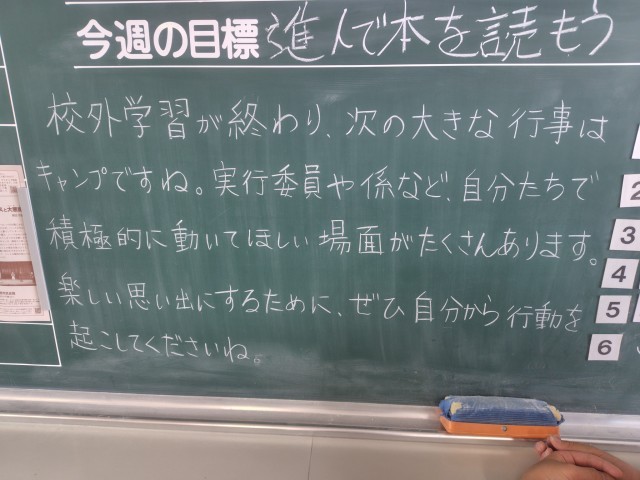 今週の目標 進んで本を読もう
校外学習が終わり、次の大きな行事は
キャンプですね。実行委員や係など、自分たちで
積極的に動いてほしい場面がたくさんあります。
楽しい思い出にするために、ぜひ自分から行動を
起こしてくださいね。
2
3
4
5
6